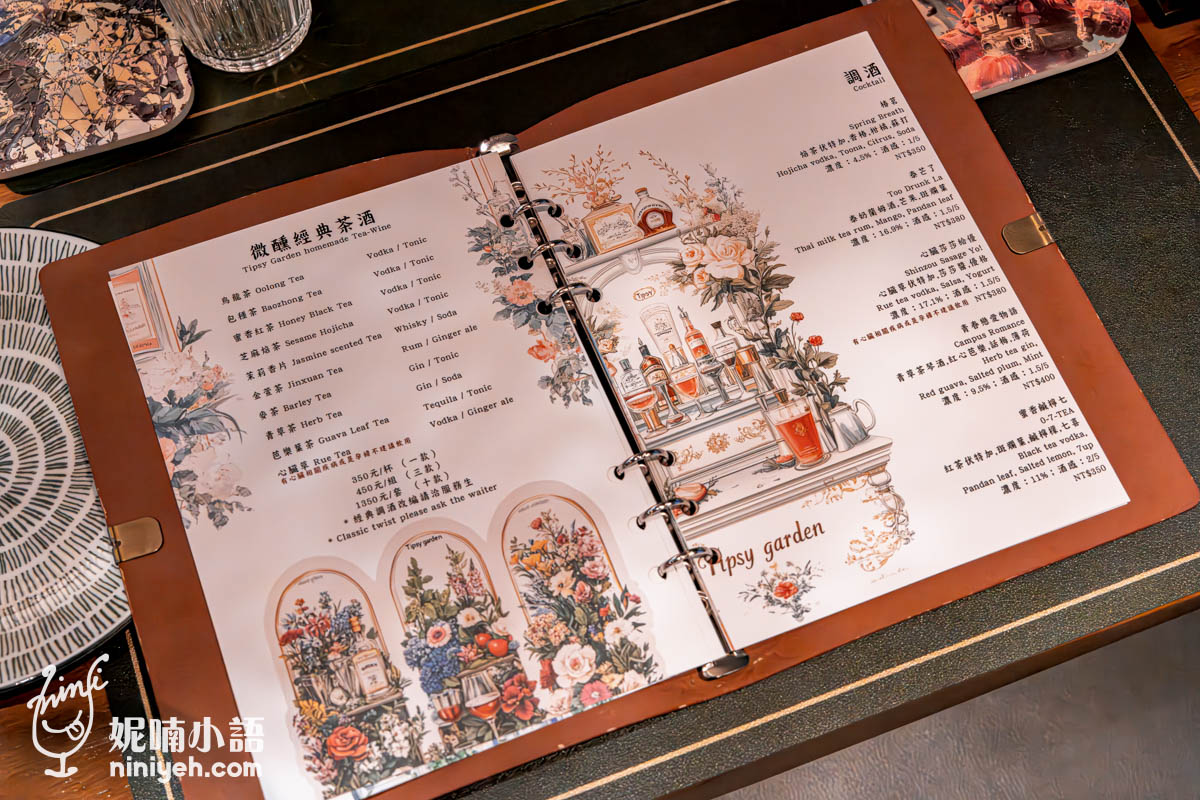 微醺經典茶酒
Tipsy Garden homemade Tea-Wine
烏龍茶 Oolong Tea Vodka / Tonic
包種茶 Baozhong Tea Vodka / Tonic
蜜香紅茶 Honey Black Tea Vodka / Tonic
芝麻焙茶 Sesame Hojicha Vodka / Tonic
茉莉香片 Jasmine scented Tea Whisky / Soda
金萱茶 Jinxuan Tea Rum / Ginger ale
麥茶 Barley Tea Gin / Tonic
青草茶 Herb Tea Gin / Soda
芭樂葉茶 Guava Leaf Tea Tequila / Tonic
心臟草 Rue Tea Vodka / Ginger ale
有心臟相關疾病或是孕婦不建議飲用
350元/杯 （一款）
450元/組 （三款）
1350元/套 （十款）
* 經典調酒改編請洽服務生
* Classic twist please ask the waiter
Tipsy garden
調酒
Cocktail
椿茗
Spring Breath
焙茶伏特加,香椿,柑橘,蘇打
Hojicha vodka, Toona, Citrus, Soda
濃度：4.5%；酒感：1/5
NT$350
泰芒了
Too Drunk La
泰奶蘭姆酒,芒果,斑斕葉
Thai milk tea rum, Mango, Pandan leaf
濃度：16.9%；酒感：1.5/5
NT$380
心臟莎莎給優
Shinzou Sasage Yo!
心臟草伏特加,莎莎醬,優格
Rue tea vodka, Salsa, Yogurt
濃度：17.1%；酒感：1.5/5
有心臟相關疾病或是孕婦不建議飲用 NT$380
青春戀愛物語
Campus Romance
青草茶琴酒,紅心芭樂,話梅,薄荷
Herb tea gin,
Red guava, Salted plum, Mint
濃度：9.5%；酒感：1.5/5
NT$400
蜜香鹹檸七
0-7-TEA
紅茶伏特加,斑斕葉,鹹檸檬,七喜
Black tea vodka,
Pandan leaf, Salted lemon, 7up
濃度：11%；酒感：2/5
NT$350
Tipsy
Tipsy garden
nini
妮喃小語
niniyeh.com